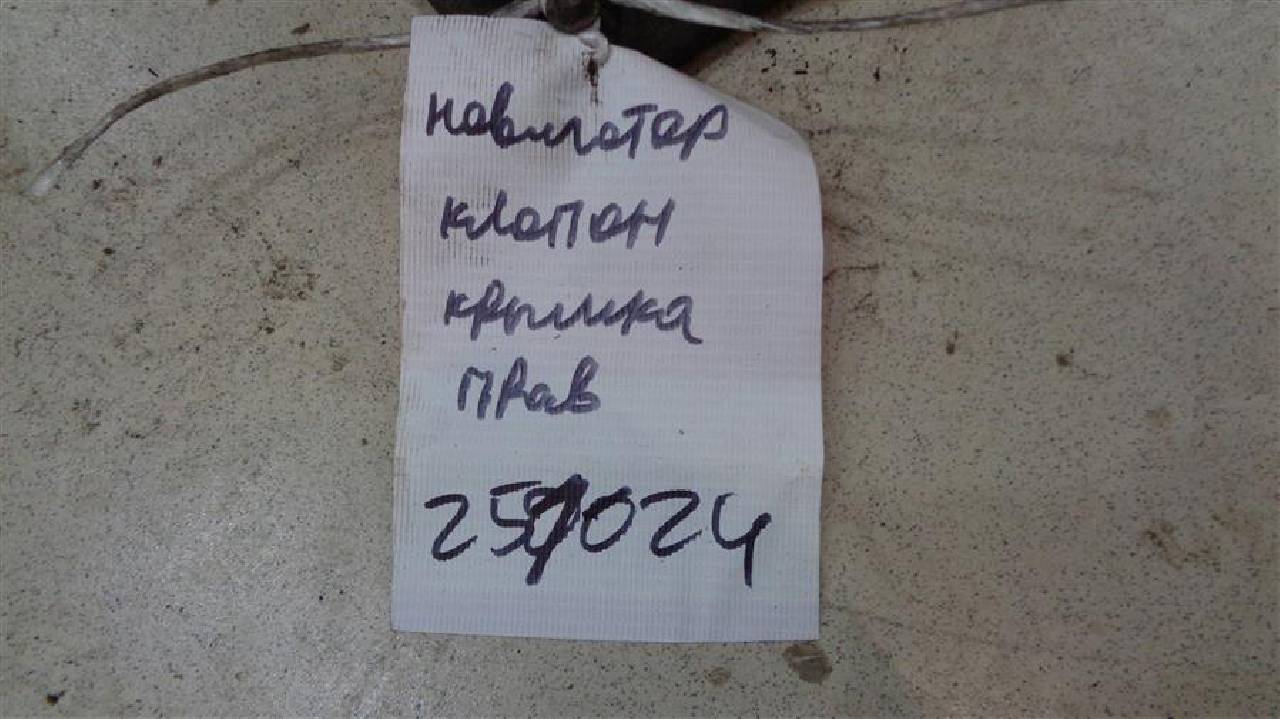 навигатор
клапан
крышка
прав
251024